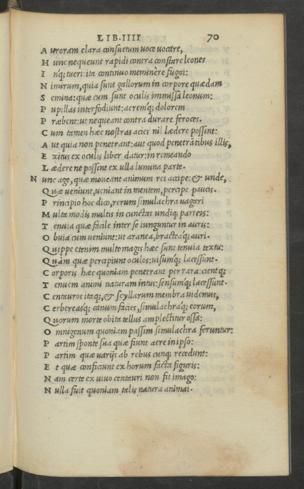 LIB.IIII 70
A uroram clara consuetum uoce uocare,
H unc nequeunt rapidi contra constare leones
I nq; tueri: ita continuo meminere fugai:
N imirum, quia sunt gallorum in corpore quædam
S emina: quæ cum sunt oculis immissa leonum:
P upillas interfodiunt: acremq; dolorem
P ræbent: ut nequeant contra durare feroces.
C um tamen hæc nostras acies nil lædere possint:
A ut quia non penetrant: aut quod penetrātibus illis,
E xitus ex oculis liber datur: in remeando
L ædere ne possint ex ulla lumina parte.
N unc age, quæ moueant animum res accipe: & unde,
Q uæ ueniunt, ueniant in mentem, percipe paucis.
P rincipio hoc dico, rerum simulachra uagari
M ulta modis multis in cunctas undiq; parteis:
T enuia quæ facile inter se iunguntur in auris:
O buia cum ueniunt: ut aranea, bracteaq; auri.
Q uippe etenim multo magis hæc sunt tenuia textu:
Q uàm quæ percipiunt oculos: uisumq; lacessunt.
C orporis hæc quoniam penetrant per rara: cientq;
T enuem animi naturam intus: sensumq; lacessunt.
C entauros itaq;, & scyllarum membra uidemus,
C erbereasq; canum facies, simulachraq; eorum,
Q uorum morte obita tellus amplectitur ossa:
O mnigenum quoniam passim simulachra feruntur:
P artim sponte sua quæ fiunt aere in ipso:
P artim quæ uarijs ab rebus cunq; recedunt:
E t quæ conficiunt ex horum facta figuris:
N am certe ex uiuo centauri non fit imago:
N ulla fuit quoniam talis natura animai.